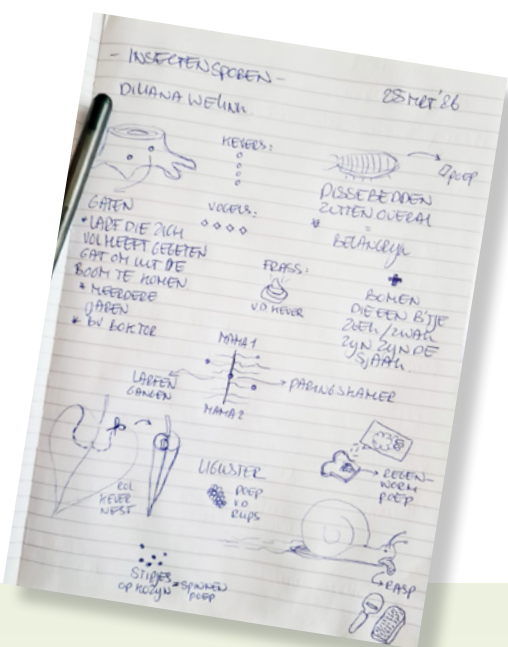 - INSECTENSPOREN -
28 MRT '26
DILIANA WELINK
KEVERS:
POEP
PISSEBEDDEN
ZITTEN OVERAL
GATEN
VOGELS:
* LARF DIE ZICH
VOL HEEFT GEGETEN
GAT OM UIT DE
BOOM TE KOMEN
* MEERDERE
JAREN
* BV BOKTOR
BELANGRIJK
FRASS:
VD KEVER
BOMEN
DIE EEN BITJE
ZIEK/ZWAK
ZIJN ZIJN DE
SJAAK
MAMA 1
LARFEN
GANGEN
PARINGSKAMER
MAMA 2
ROL
KEVER
NEST
LIGUSTER
POEP
VD
RUPS
REGEN-
WORM
POEP
RASP
STIPJES
OP KOZIJN = SPINNEN
POEP